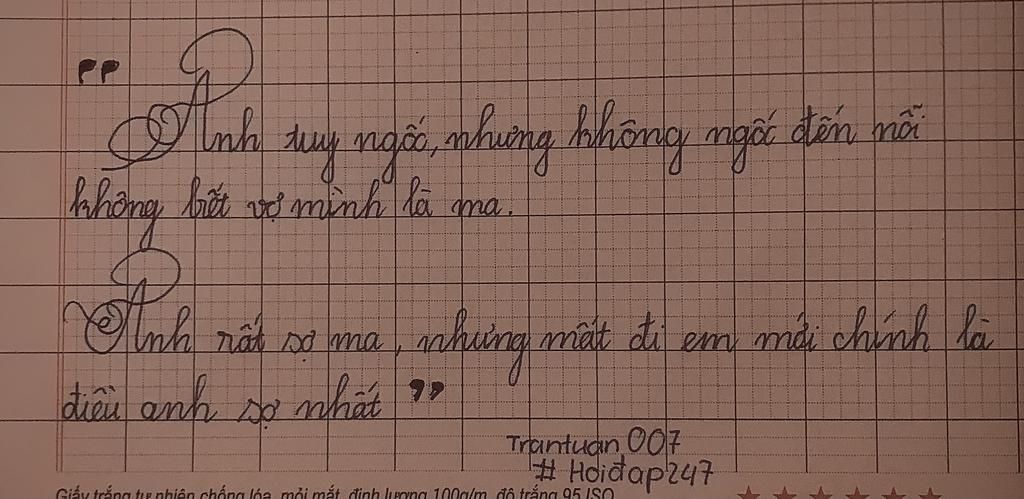 "Anh tuy ngốc, nhưng không ngốc đến nỗi
không biết vợ mình là ma.
Anh rất sợ ma, nhưng mất đi em mới chính là
điều anh sợ nhất"
Trantuan007
# Hoidap247
Giấy trắng tự nhiên chống lóa, mỏi mắt, định lượng 100g/m, độ trắng 95 ISO